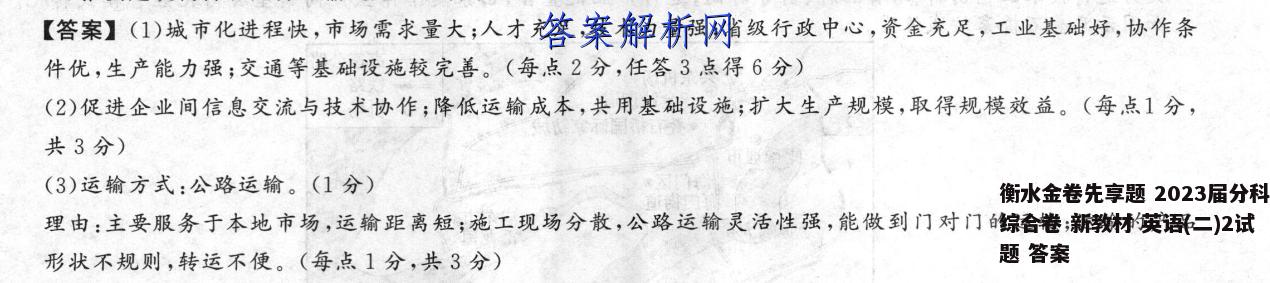 【答案】(1)城市化进程快,市场需求量大;人才充 强 省级行政中心,资金充足,工业基础好,协作条
答案解析网
件优,生产能力强;交通等基础设施较完善。(每点2分,任答3点得6分)
(2)促进企业间信息交流与技术协作;降低运输成本,共用基础设施;扩大生产规模,取得规模效益。(每点1分,
共3分)
(3)运输方式:公路运输。(1分)
理由:主要服务于本地市场,运输距离短;施工现场分散,公路运输灵活性强,能做到门对门的
形状不规则,转运不便。(每点1分,共3分)
衡水金卷先享题 2023届分科
综合卷 新教材 英语(二)2试
题 答案